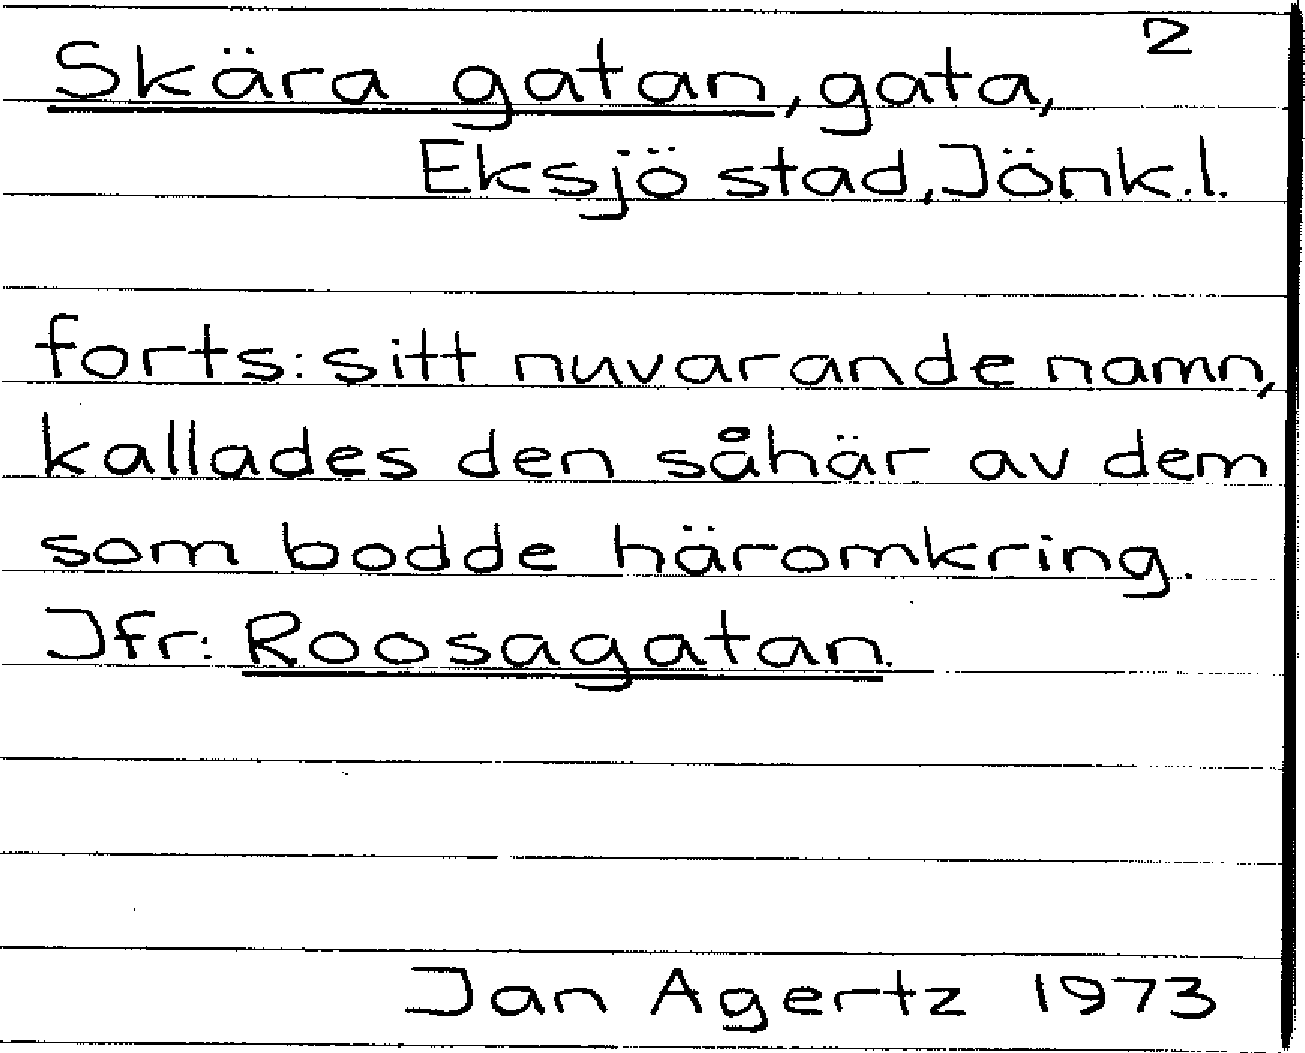 2
Skära gatan, gata,
Eksjö stad, Jönk.l.
forts: sitt nuvarande namn,
kallades den såhär av dem
som bodde häromkring.
Jfr: Roosagatan.
Jan Agertz 1973